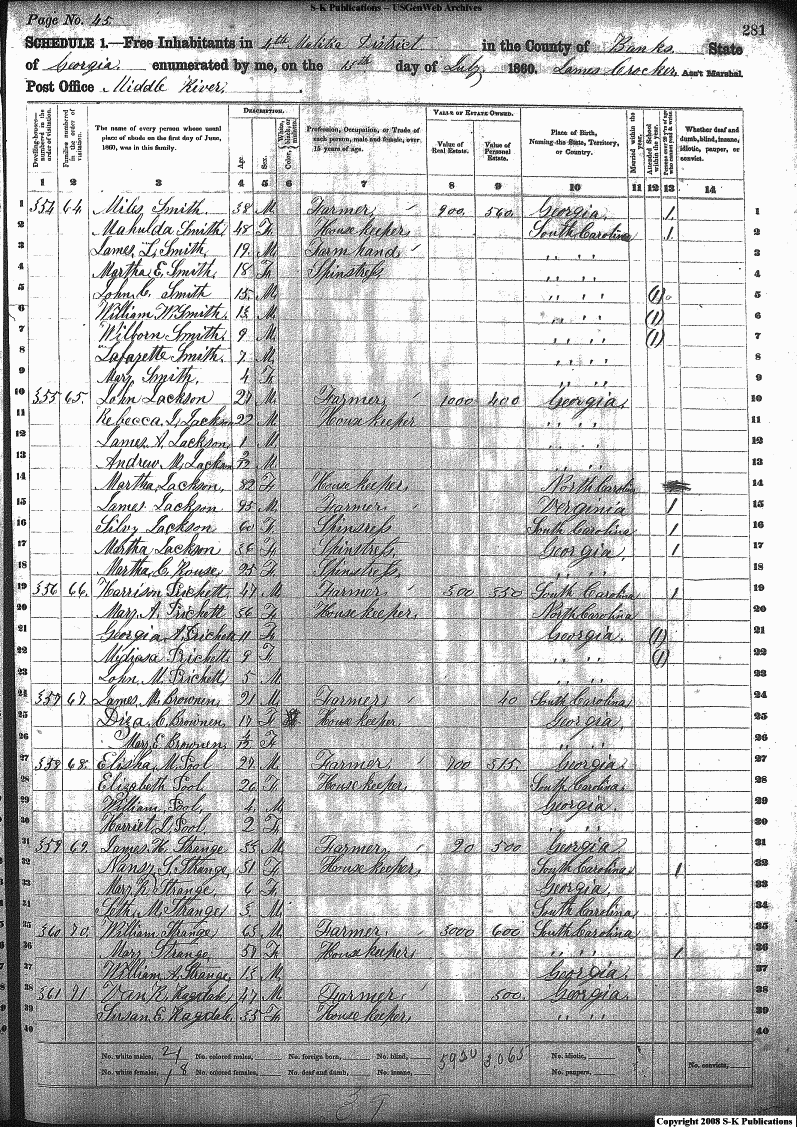 S-K Publications – USGenWeb Archives
Page No. 45
281
SCHEDULE 1.—Free Inhabitants in 4th Militia District in the County of Banks State
of Georgia enumerated by me, on the 11th day of July 1860. James Crocker Ass't Marshal.
Post Office Middle River
Dwelling-houses—numbered in the order of visitation.
Families numbered in the order of visitation.
The name of every person whose usual place of abode on the first day of June, 1860, was in this family.
DESCRIPTION.
Age. Sex. Color, White, black, or mulatto.
Profession, Occupation, or Trade of each person, male and female, over 15 years of age.
VALUE OF ESTATE OWNED.
Value of Real Estate. Value of Personal Estate.
Place of Birth, Naming the State, Territory, or Country.
Married within the year.
Attended School within the year.
Whether deaf and dumb, blind, insane, idiotic, pauper, or convict.
1 2 3 4 5 6 7 8 9 10 11 12 13 14
1 354 64 Miles Smith 38 M Farmer 900 560 Georgia 1 1
2 Mahulda Smith 48 F House keeper South Carolina 1 2
3 James L Smith 19 M Farm hand " " " " 3
4 Martha E. Smith 18 F Spinstress " " " " 4
5 John C. Smith 15 M " " " " (1) 5
6 William W Smith 13 M " " " " (1) 6
7 Wilborn Smith 9 M " " " " (1) 7
8 Lafarette Smith 7 M " " " " 8
9 Mary Smith 4 F " " " " 9
10 355 65 John Jackson 27 M Farmer 1000 400 Georgia 10
11 Rebecca J. Jackson 22 M House keeper " " " " 11
12 James A. Jackson 1 M " " " " 12
13 Andrew M. Jackson 2/12 M " " " " 13
14 Martha Jackson 82 F House keeper North Carolin 14
15 James Jackson 95 M Farmer Verginia 1 15
16 Silvy Jackson 60 F Spinstress South Carolina 1 16
17 Martha Jackson 36 F Spinstress Georgia 1 17
18 Martha C. Rouse 25 F Spinstress " " " " 18
19 356 66 Harrison Prickett 47 M Farmer 500 350 South Carolina 1 19
20 Mary A. Prickett 36 F House keeper North Carolina 20
21 Georgia A. Prickett 11 F Georgia (1) 21
22 Prickett 9 F " " " " (1) 22
23 John M. Prickett 5 M " " " " 23
24 357 67 James M. Brownen 21 M Farmer 40 South Carolina 24
25 C. Brownen 17 F House keeper Georgia 25
26 Mary E Brownen 4/12 F " " " " 26
27 358 68 Elisha M. Pool 27 M Farmer 700 515 Georgia 27
28 Elizabeth Pool 26 F House keeper South Carolina 28
29 William Pool 4 M Georgia 29
30 Harriet D. Pool 2 F " " " " 30
31 359 69 James W. Strange 53 M Farmer 20 500 Georgia 31
32 Nansy S. Strange 51 F House keeper South Carolina 1 32
33 Mary R Strange 6 F Georgia 33
34 Seth M Strange 3 M South Carolina 34
35 360 70 William Strange 63 M Farmer 3000 600 South Carolina 35
36 Mary Strange 57 F House keeper " " " " 1 36
37 William A. Strange 13 M Georgia 37
38 361 71 Van R. Ragdale 47 M Farmer 500 Georgia 38
39 Susan E. Ragdale 35 F House keeper " " " " 39
40 40
No. white males, 21 No. colored males, No. foreign born, No. blind, 5920 3065 No. idiotic,
No. white females, 18 No. colored females, No. deaf and dumb, No. insane, No. paupers, No. convicts,
Copyright 2008 S-K Publications